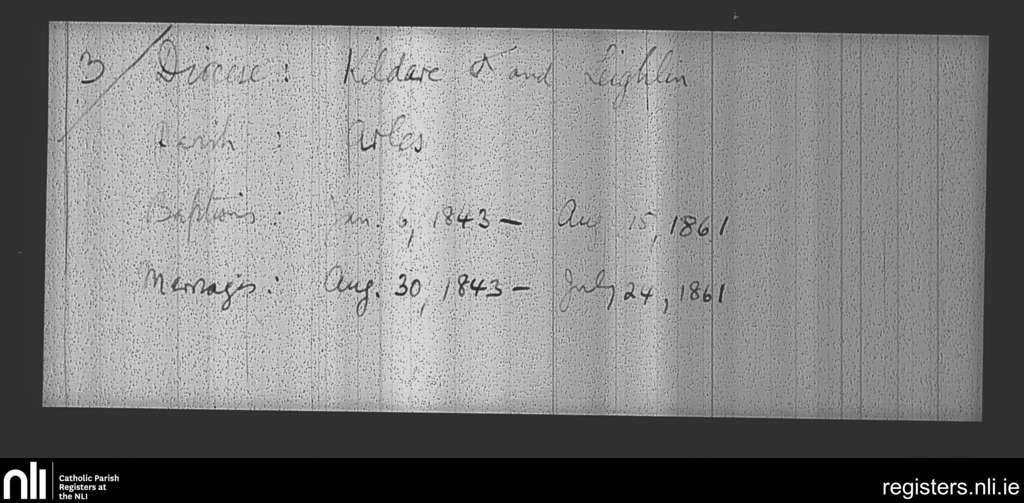 3 Diocese : Kildare & and Leighlin
Parish : Arles
Baptisms : Jan. 6, 1843 — Aug 15, 1861
Marriages : Aug. 30, 1843 — July 24, 1861
nli
Catholic Parish
Registers at
the NLI
registers.nli.ie